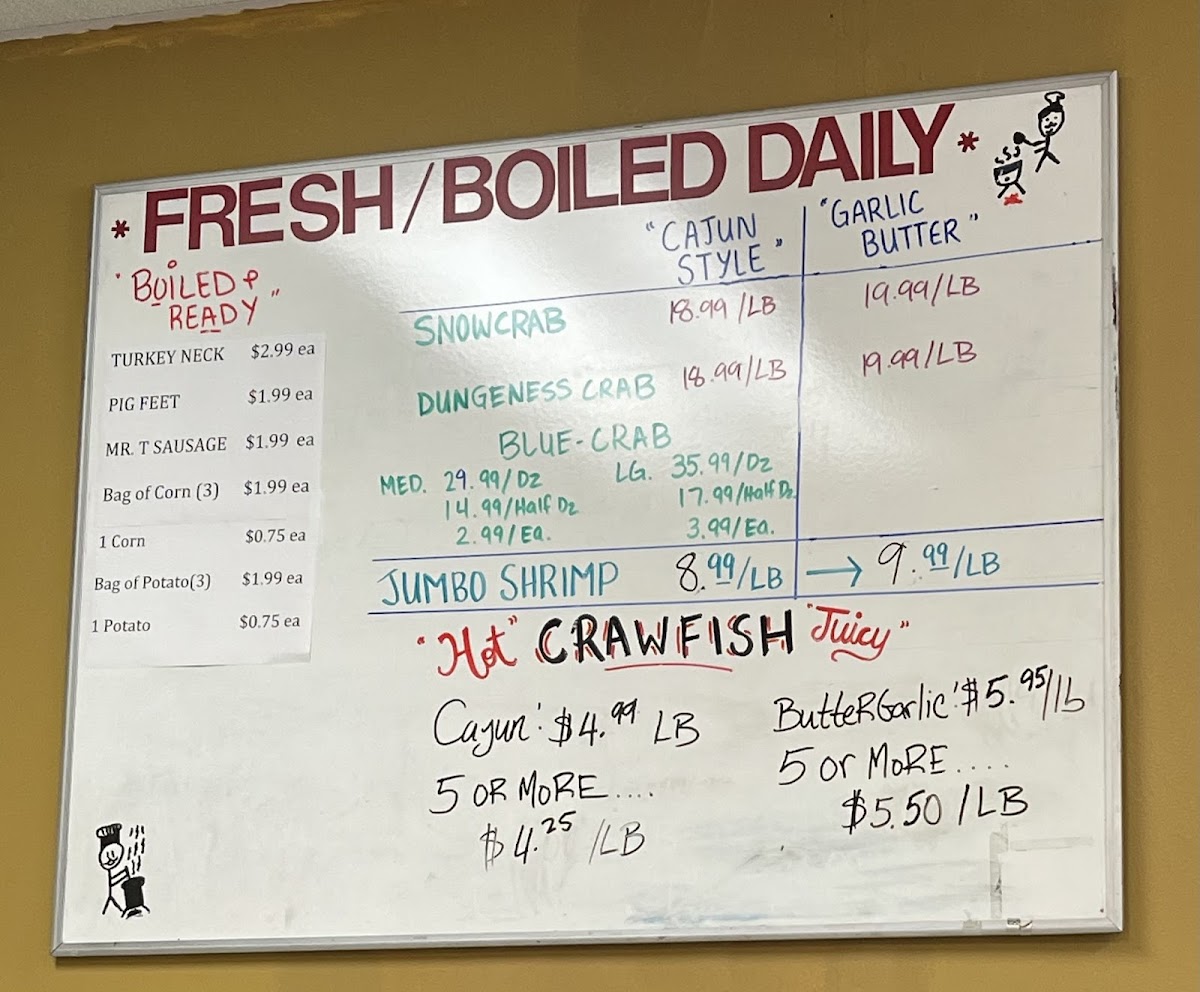 * FRESH/BOILED DAILY *
"BOILED &
READY"
TURKEY NECK $2.99 ea
PIG FEET $1.99 ea
MR. T SAUSAGE $1.99 ea
Bag of Corn (3) $1.99 ea
1 Corn $0.75 ea
Bag of Potato(3) $1.99 ea
1 Potato $0.75 ea
"CAJUN
STYLE"
"GARLIC
BUTTER"
SNOWCRAB 18.99/LB 19.99/LB
DUNGENESS CRAB 18.99/LB 19.99/LB
BLUE-CRAB
MED. 29.99/Dz LG. 35.99/Dz
14.99/Half Dz 17.99/Half Dz
2.99/Ea. 3.99/Ea.
JUMBO SHRIMP 8.99/LB → 9.99/LB
"Hot" CRAWFISH "Juicy"
Cajun: $4.99 LB
5 OR MORE....
$4.25 /LB
ButteRGarlic: $5.95/lb
5 or MoRE....
$5.50/LB